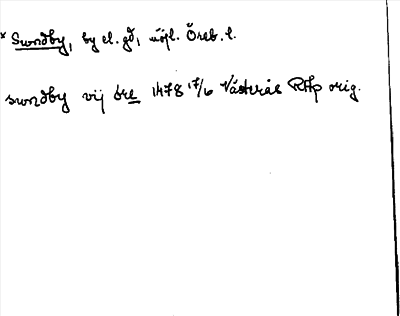 * Swndby, by el. gd, möjl. Öreb. l.
swndby vij öre 1478 17/6 Västerås RAp orig.